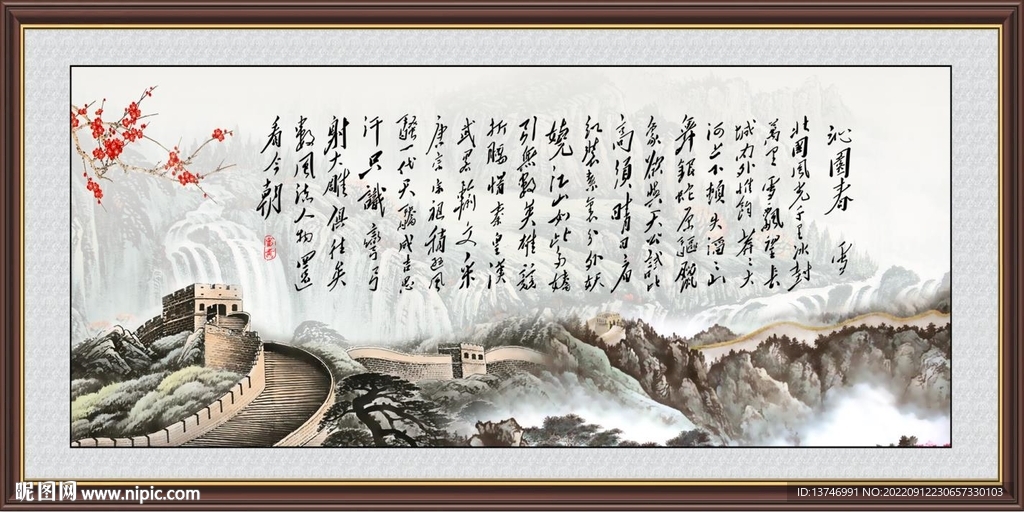 沁園春 雪
北國風光千里冰封
萬里雪飄望長
城內外惟餘莽〻大
河上下頓失滔〻山
舞銀蛇原馳臘
象欲與天公試比
高須晴日看
紅裝素裹分外妖
嬈江山如此多嬌
引無數英雄競
折腰惜秦皇漢
武略輸文采
唐宗宋祖稍遜風
騷一代天驕成吉思
汗只識彎弓
射大雕俱往矣
數風流人物還
看今朝
昵图网 www.nipic.com
ID:13746991 NO:20220912230657330103